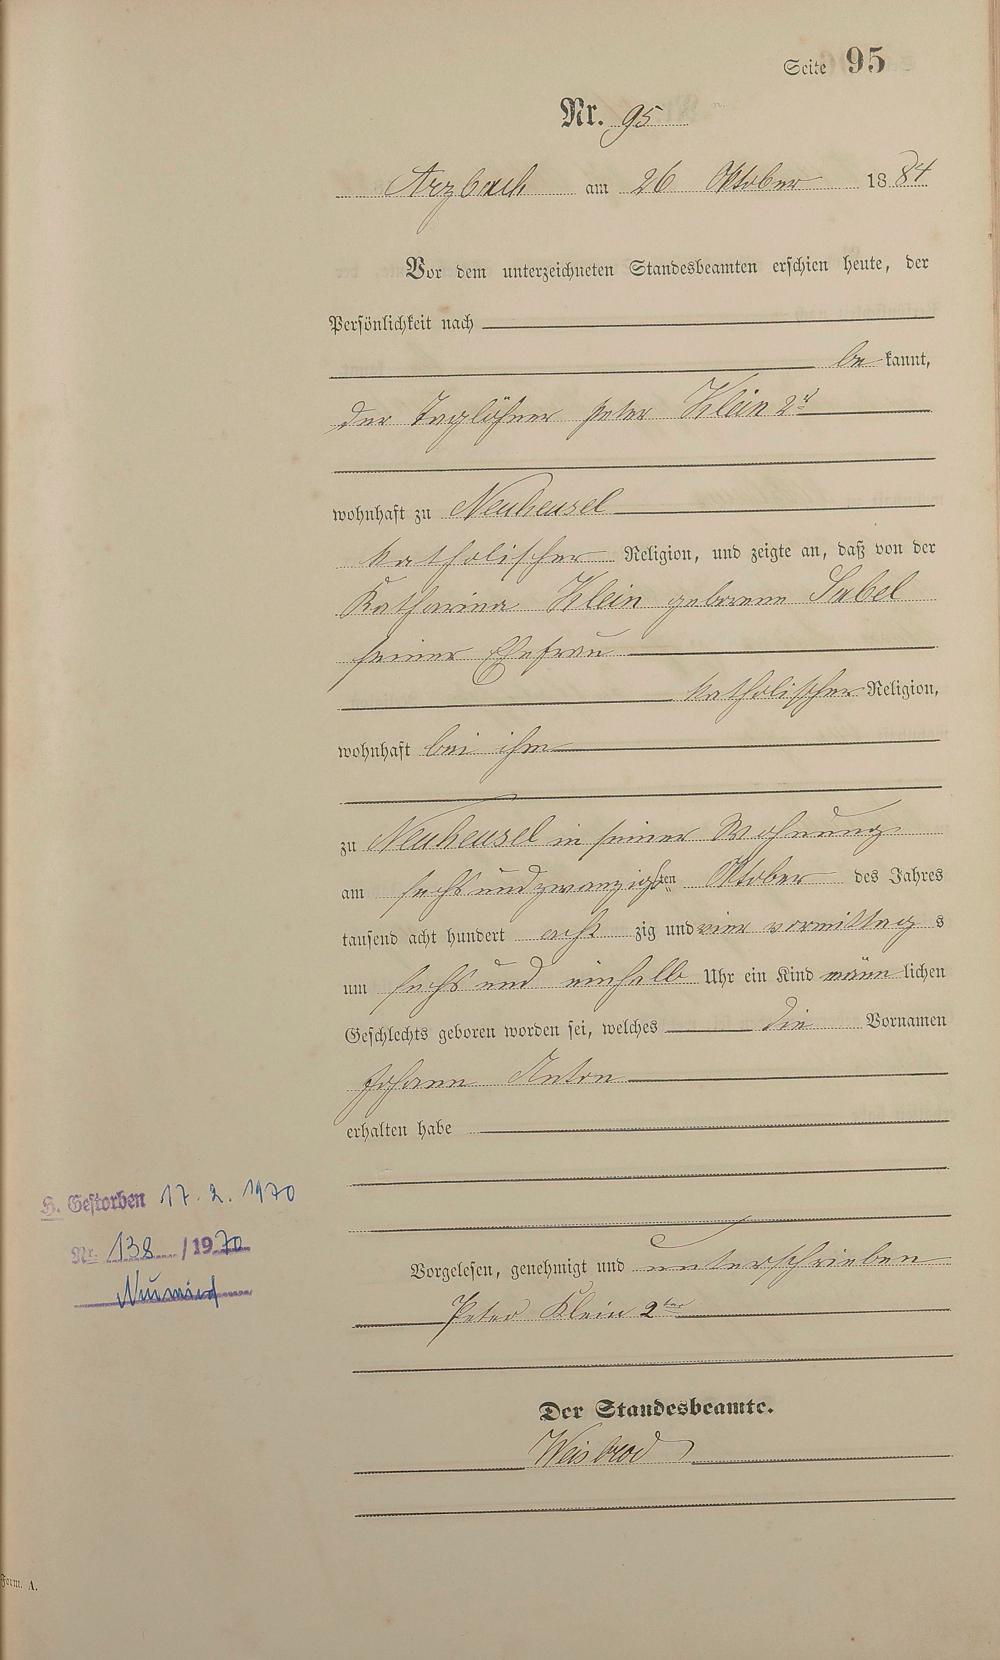 Seite 95
Nr. 95
Arzbach am 26 Oktober 1884
Vor dem unterzeichneten Standesbeamten erschien heute, der
Persönlichkeit nach
be kannt,
der Taglöhner Peter Klein 2r
wohnhaft zu Neuheusel
katholischer Religion, und zeigte an, daß von der
Katharina Klein geborene Sabel
seiner Ehefrau
katholischer Religion,
wohnhaft bei ihm
zu Neuheusel in seiner Wohnung
am sechs und zwanzigsten Oktober des Jahres
tausend acht hundert acht zig und vier vormittag s
um sechs und einhalb Uhr ein Kind männ lichen
Geschlechts geboren worden sei, welches die Vornamen
Johann Anton
erhalten habe
H. Gestorben 17. 2. 1970
Nr. 138 /1970
Neuwied
Vorgelesen, genehmigt und unterschrieben
Peter Klein 2ter
Der Standesbeamte.
Weisbrod
Form. A.